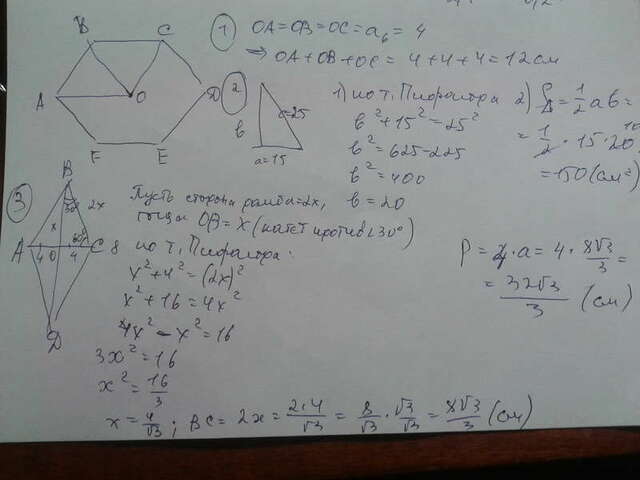 B C
A O D
F E
1 OA=OB=OC=a₆ = 4
⇒ OA+OB+OC = 4+4+4=12см
2
в c=25
a=15
1) по т. Пифагора
в²+15²=25²
в²=625-225
в²=400
в=20
2) S=1/2 ав=
=1/2·15·20=
=150(см²)
3
B
30° 2x
x 60°
A 4 O 4 C 8
D
Пусть сторона ромба=2x,
тогда OB=x(катет против∠30°)
по т. Пифагора:
x²+4²=(2x)²
x²+16=4x²
4x²-x²=16
3x²=16
x²=16/3
x=4/√3; BC=2x=2·4/√3=8/√3·√3/√3=8√3/3(см)
P=4·a=4·8√3/3=
=32√3/3 (см)